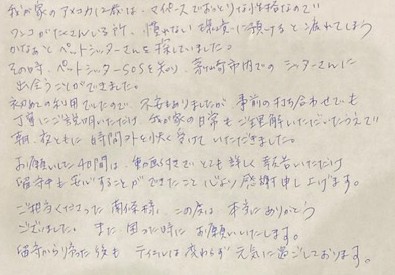 我が家のアメコカ12歳は、マイペースでおっとりな性格なので
ワンコがたくさんいる所、慣れない環境に預けると疲れてしまう
かなぁとペットシッターさんを探していました。
その時、ペットシッターSOSを知り、市内でのシッターさんに
出会うことができました。
初めての利用でしたので不安もありましたが、事前の打ち合わせでも
丁寧にご説明いただけ我が家の日常もご理解いただいたうえで
朝、夜ともに時間外を快く受けていただきました。
お願いした4日間は、でとても詳しく報告いただけ
留守中も安心することができたこと心より感謝申し上げます。
ご担当くださった様、この度は本当にありがとう
ございました。また困った時にお願いいたします。
留守から帰った後もは変わらず元気に過ごしております。